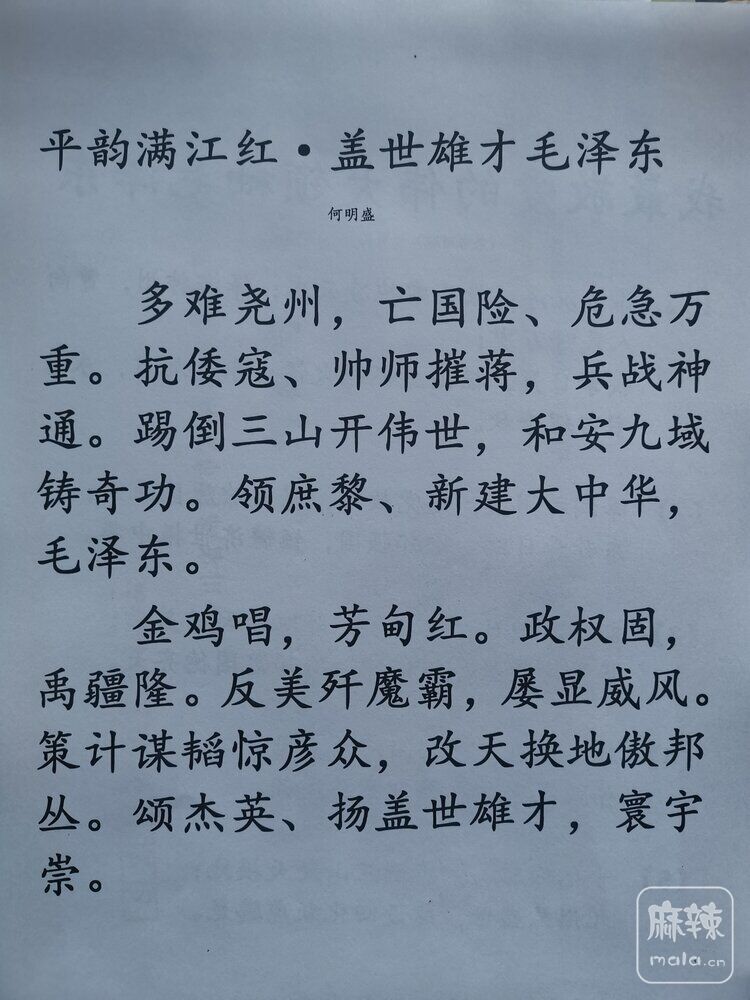 平韵满江红·盖世雄才毛泽东
何明盛
多难尧州，亡国险、危急万
重。抗倭寇、帅师摧蒋，兵战神
通。踢倒三山开伟世，和安九域
铸奇功。领庶黎、新建大中华，
毛泽东。
金鸡唱，芳甸红。政权固，
禹疆隆。反美歼魔霸，屡显威风。
策计谋韬惊彦众，改天换地傲邦
丛。颂杰英、扬盖世雄才，寰宇
崇。
麻辣
mala.cn